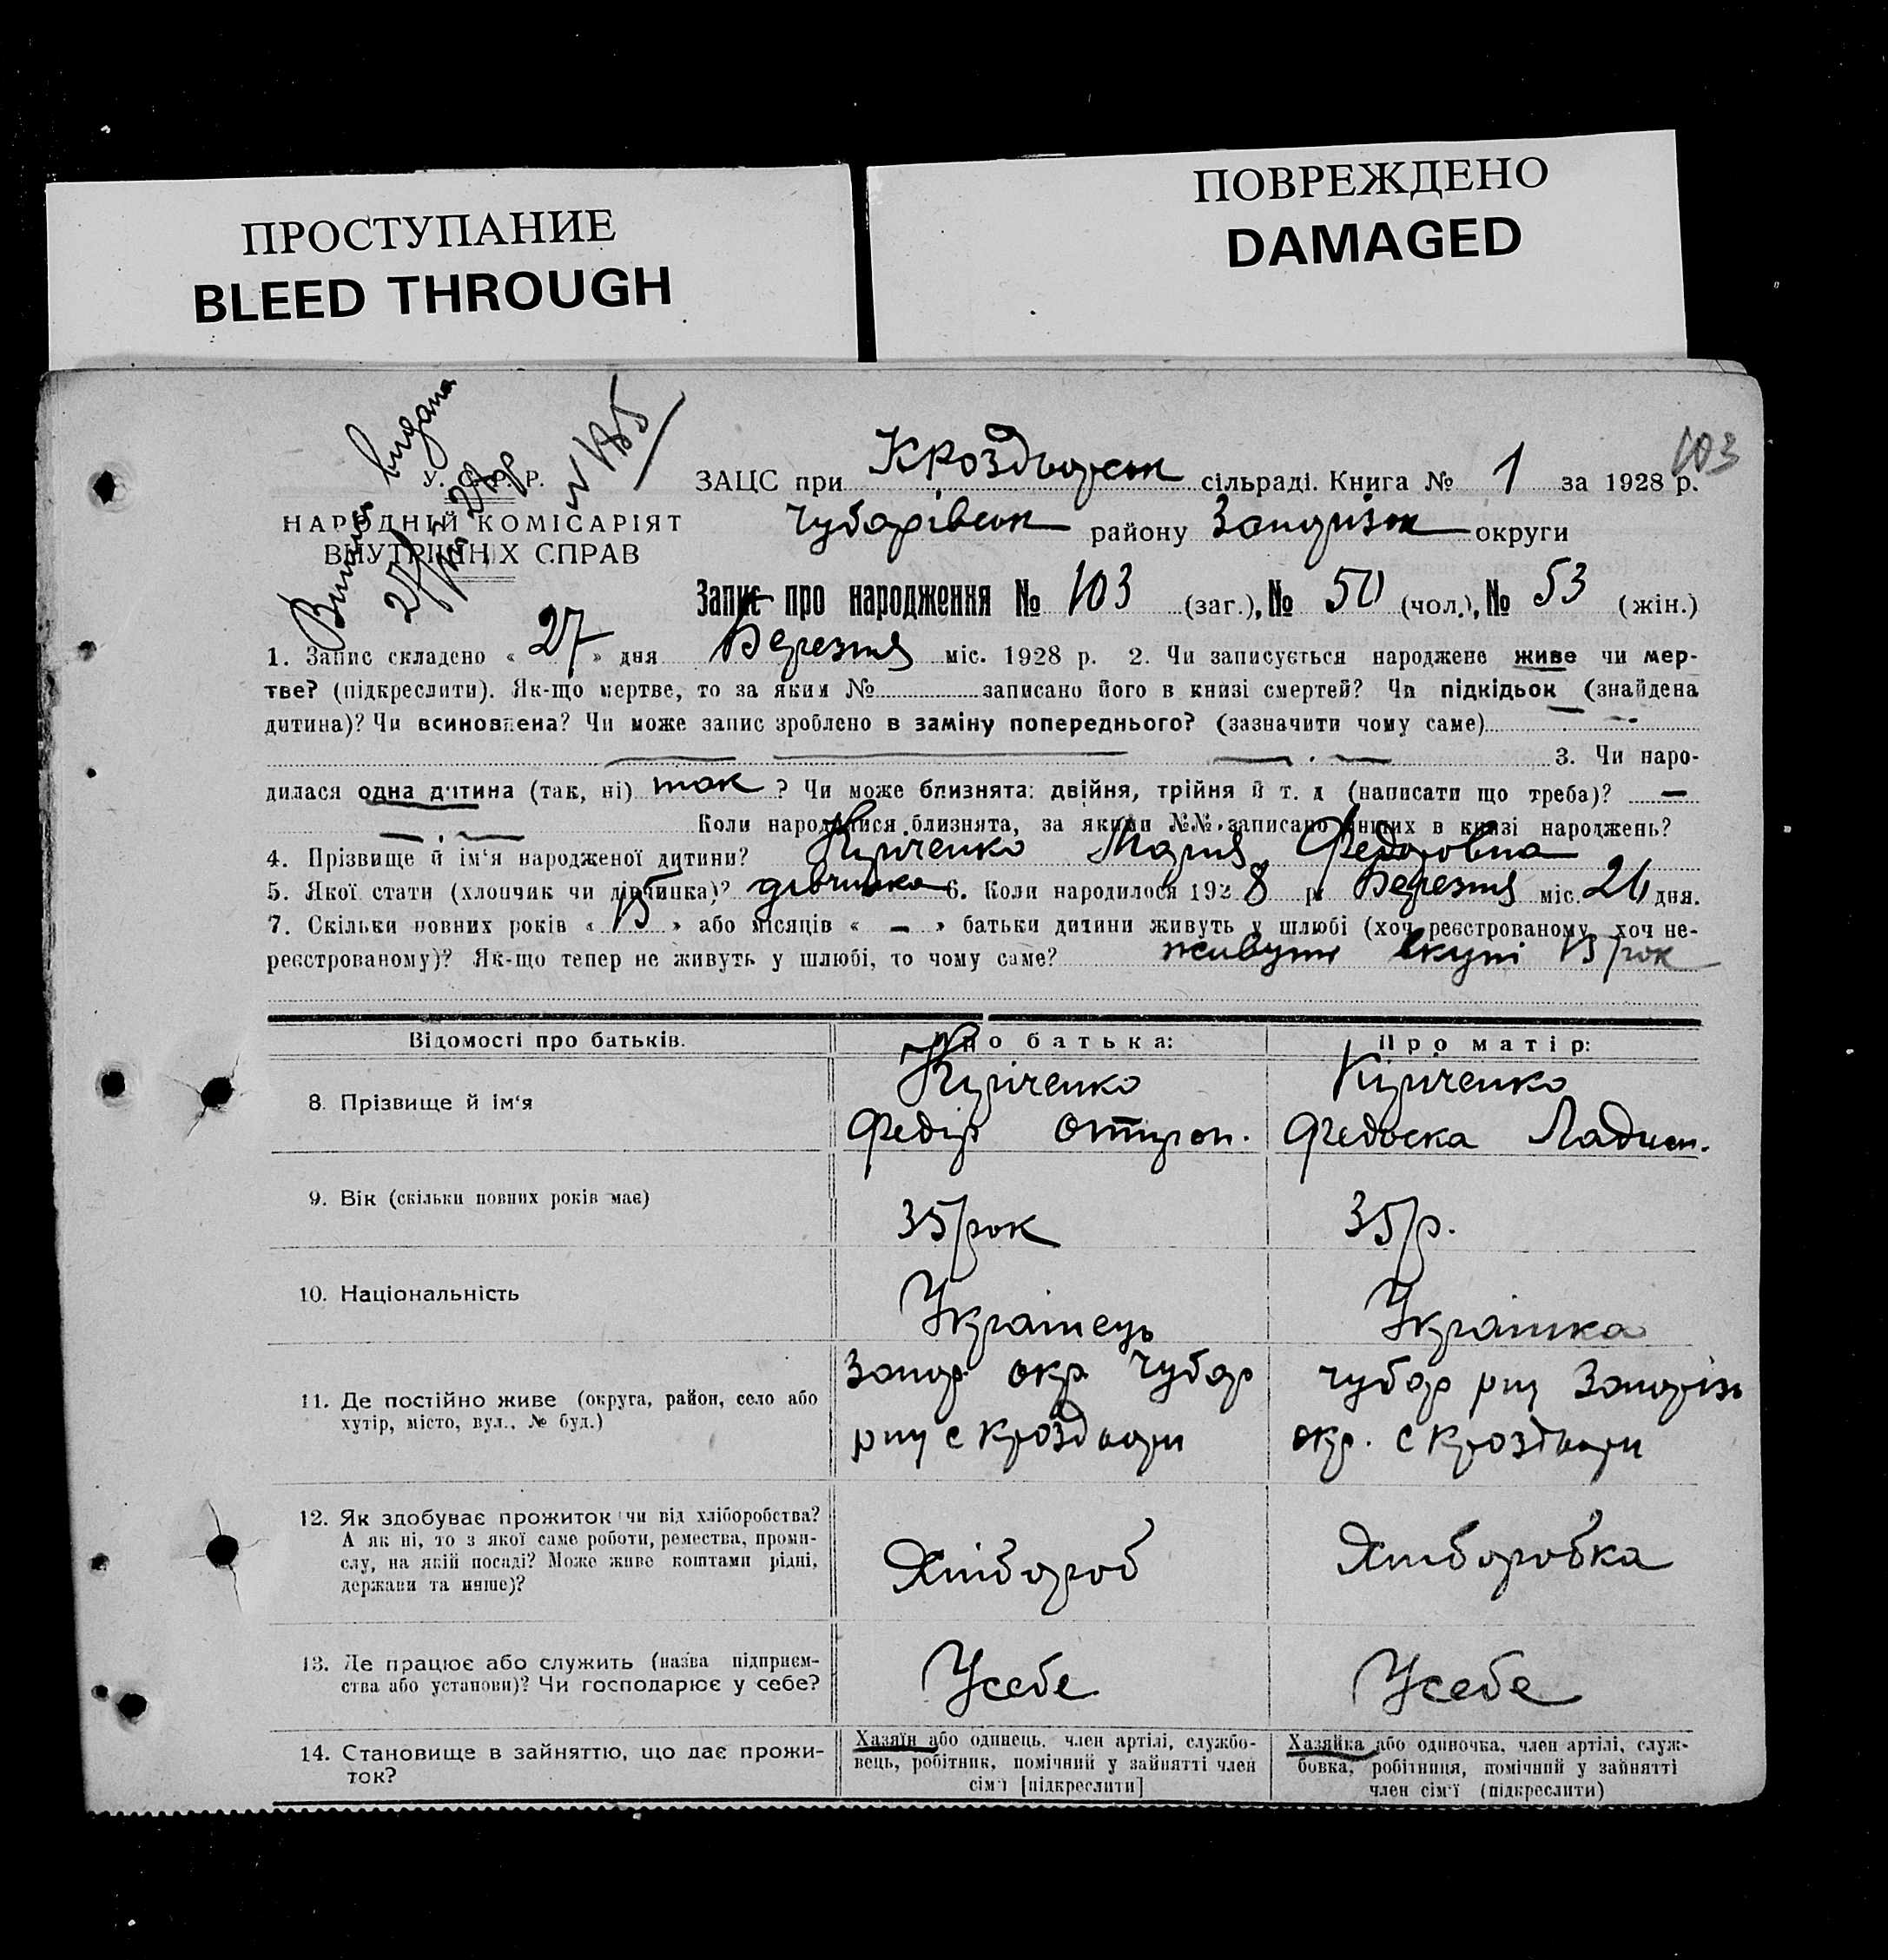 ПРОСТУПАНИЕ
BLEED THROUGH
ПОВРЕЖДЕНО
DAMAGED
103
видана
У. С. Р. Р.
НАРОДНІЙ КОМІСАРІЯТ
ВНУТРІШНІХ СПРАВ
ЗАЦС при сільраді. Книга № 1 за 1928 р.
Чубарівськ району Запорізьк округи
Запис про народження № 103 (заг.), № 50 (чол.), № 53 (жін.)
1. Запис складено « 27 » дня Березня міс. 1928 р. 2. Чи записується народжене живе чи мер-
тве? (підкреслити). Як-що мертве, то за яким № записано його в книзі смертей? Чи підкідьок (знайдена
дитина)? Чи всиновлена? Чи може запис зроблено в заміну попереднього? (зазначити чому саме) -
3. Чи наро-
дилася одна дитина (так, ні) так ? Чи може близнята: двійня, трійня й т. д (написати що треба)? —
Коли народилися близнята, за якими №№ записано инших в книзі народжень?
4. Прізвище й ім'я народженої дитини? Кіріченко Марія Федоровна
5. Якої стати (хлопчик чи дівчинка)? дівчинка 6. Коли народилося 1928 р. Березня міс. 26 дня.
7. Скільки повних років « 13 » або місяців « — » батьки дитини живуть у шлюбі (хоч реєстрованому, хоч не-
реєстрованому)? Як-що тепер не живуть у шлюбі, то чому саме? живуть вкупі 13 рок
Відомості про батьків.
Про батька:
Про матір:
8. Прізвище й ім'я
Кіріченко
Федір
Кіріченко
Федоска
9. Вік (скільки повних років має)
35/рок
35/р.
10. Національність
Українець
Українка
11. Де постійно живе (округа, район, село або
хутір, місто, вул., № буд.)
Запор окр Чубар
рну с
Чубар рну Запоріз
окр. с
12. Як здобуває прожиток чи від хліборобства?
А як ні, то з якої саме роботи, ремества, проми-
слу, на якій посаді? Може живе коштами рідні,
держави та инше)?
Хлібороб
Хліборобка
13. Де працює або служить (назва підприєм-
ства або установи)? Чи господарює у себе?
Усебе
Усебе
14. Становище в зайняттю, що дає прожи-
ток?
Хазяїн або одинець, член артілі, службо-
вець, робітник, помічний у зайнятті член
сім'ї [підкреслити]
Хазяйка або одиночка, член артілі, служ-
бовка, робітниця, помічний у зайнятті
член сім'ї (підкреслити)